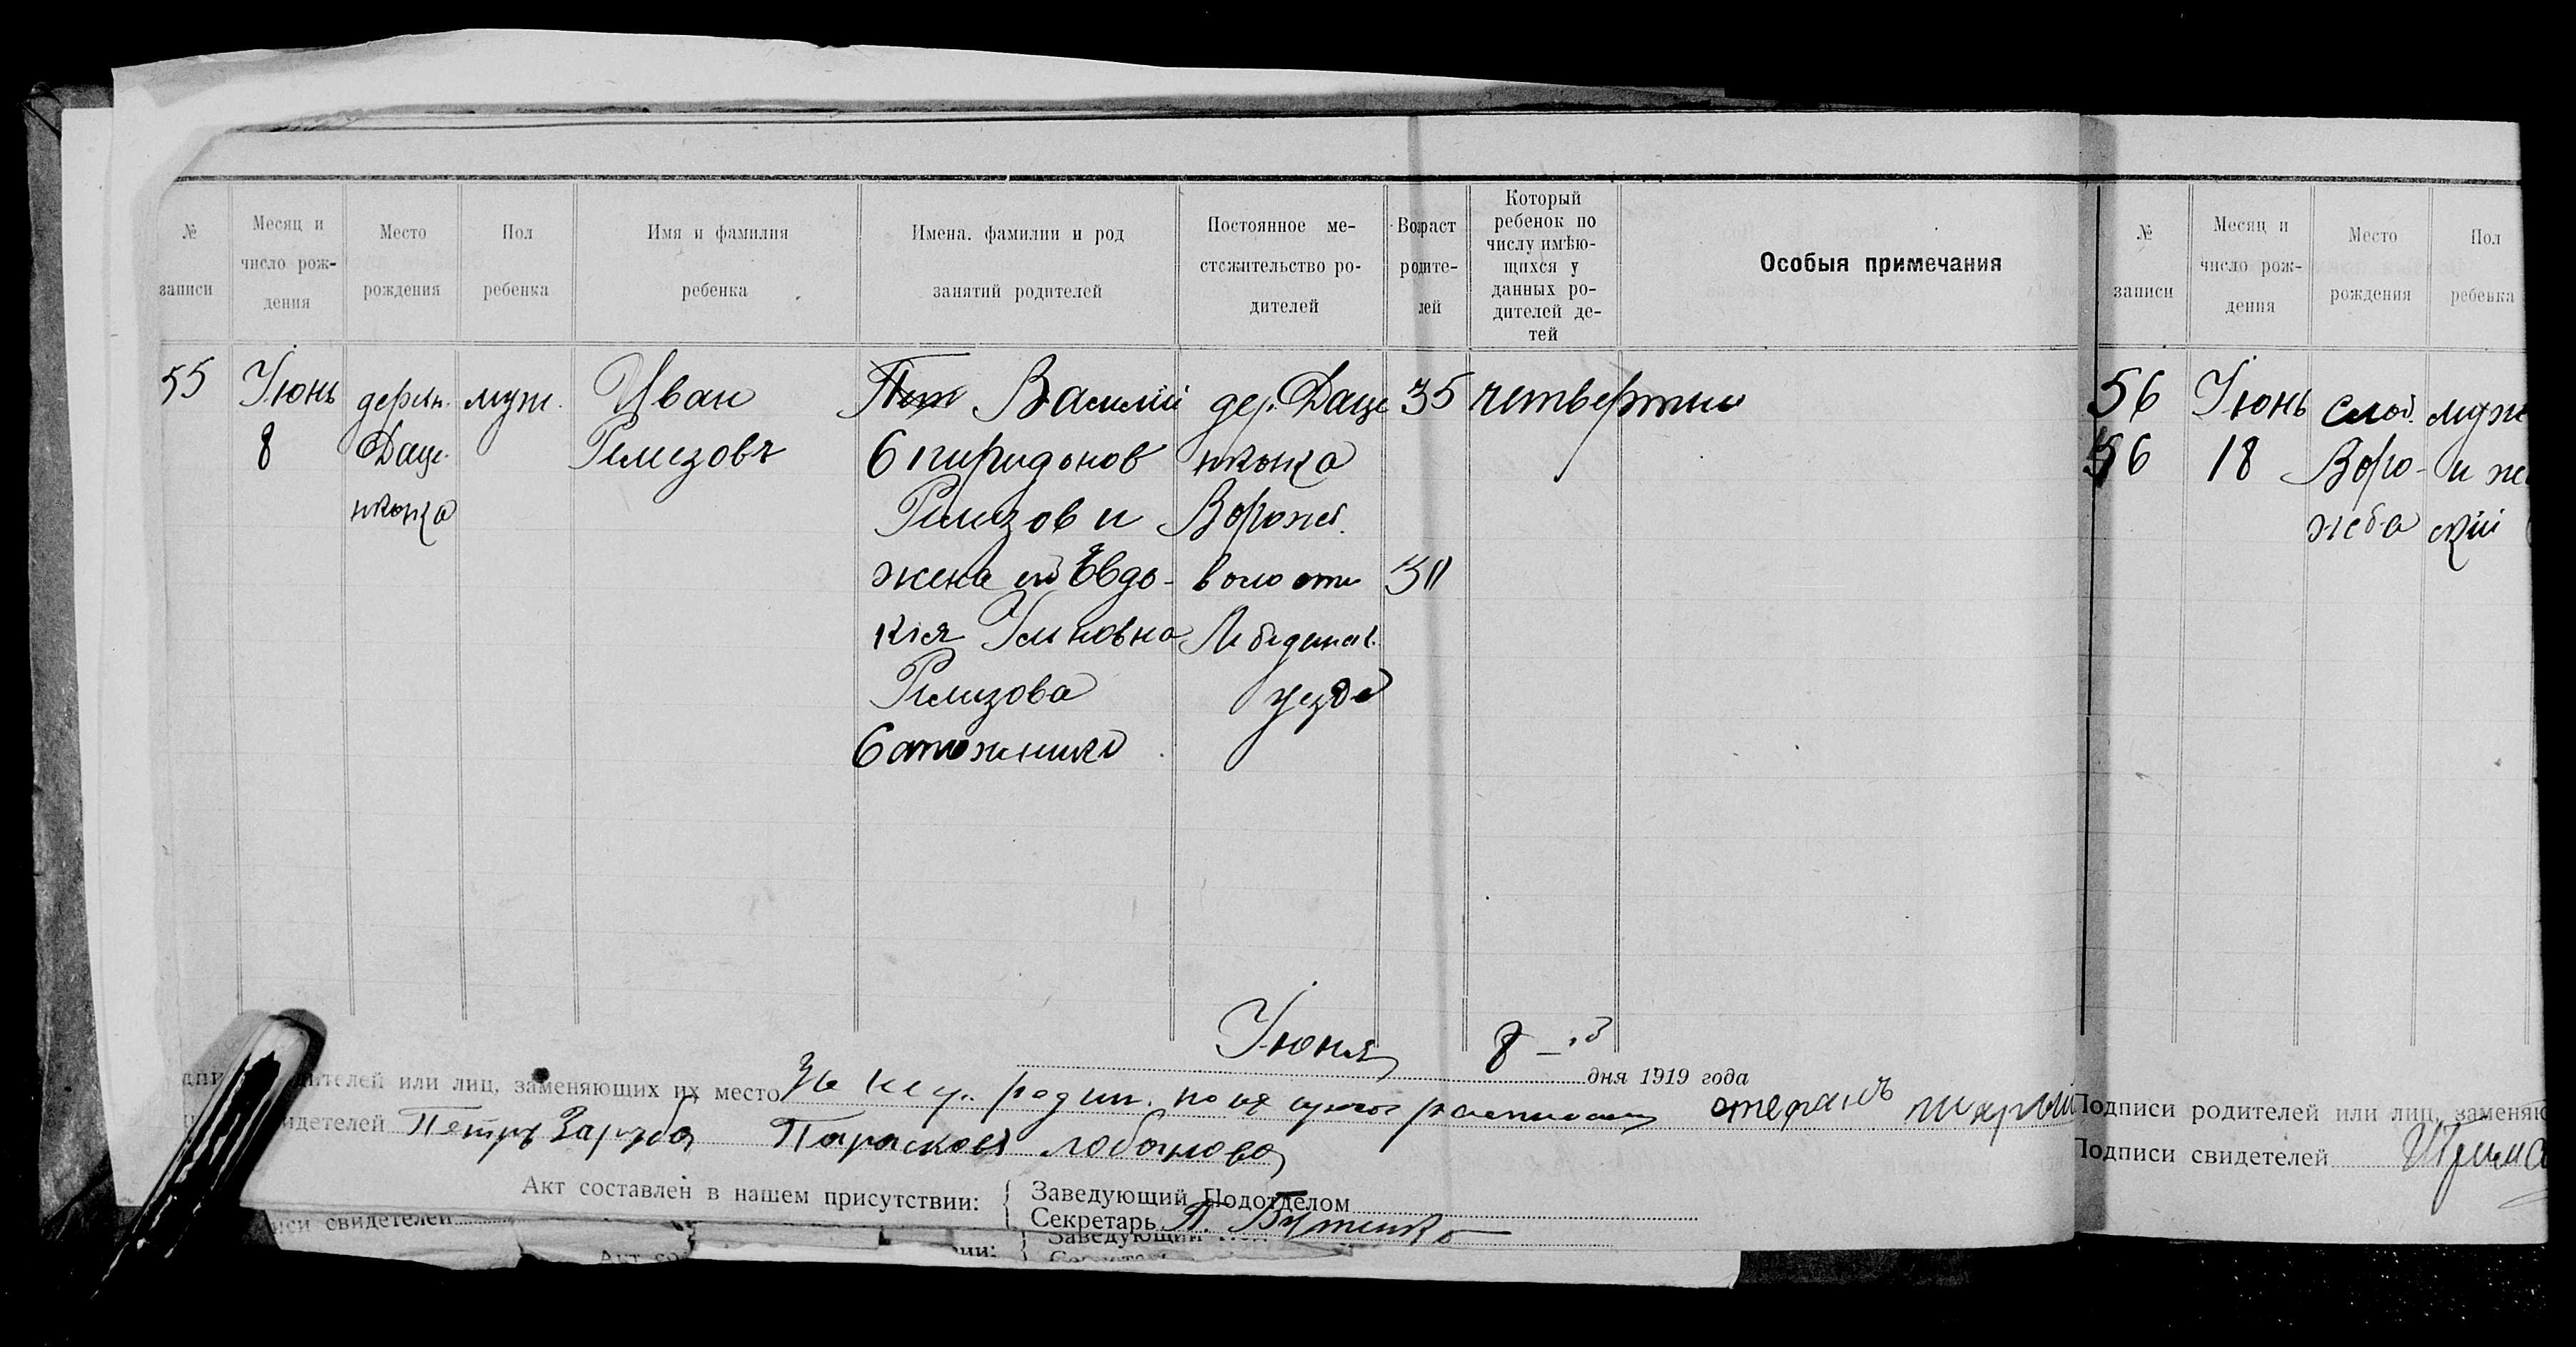 №
записи
Месяц и
число рож-
дения
Место
рождения
Пол
ребенка
Имя и фамилия
ребенка
Имена. фамилии и род
занятий родителей
Постоянное ме-
стожительство ро-
дителей
Возраст
родите-
лей
Который
ребенок по
числу имѣю-
щихся у
данных ро-
дителей де-
тей
Особыя примечания
55
Іюнь
8
деревн.
Даце-
нковка
муж.
Иван
Ремезовъ
Василий
Спиридонов
Ремизов и
жена его Евдо-
кія
Ремизова
дер. Даце
нковка
Ворожб.
волости
Лебединск.
уезда
35
30
четвертый
Іюня 8 - дня 1919 года
родителей или лиц, заменяющих их место За негр. родит. расписался
свидетелей Петръ Заруба Парасковя лобанова
Акт составлен в нашем присутствии:
Заведующий Подотделом
Секретарь П. Бутенко
иси свидетелей
Заведующий
№
записи
Месяц и
число рож-
дения
Место
рождения
Пол
ребенка
56
56
Іюнь
18
слоб.
Воро-
жба
муже
и же
ский
Подписи родителей или лиц, заменяю
Подписи свидетелей